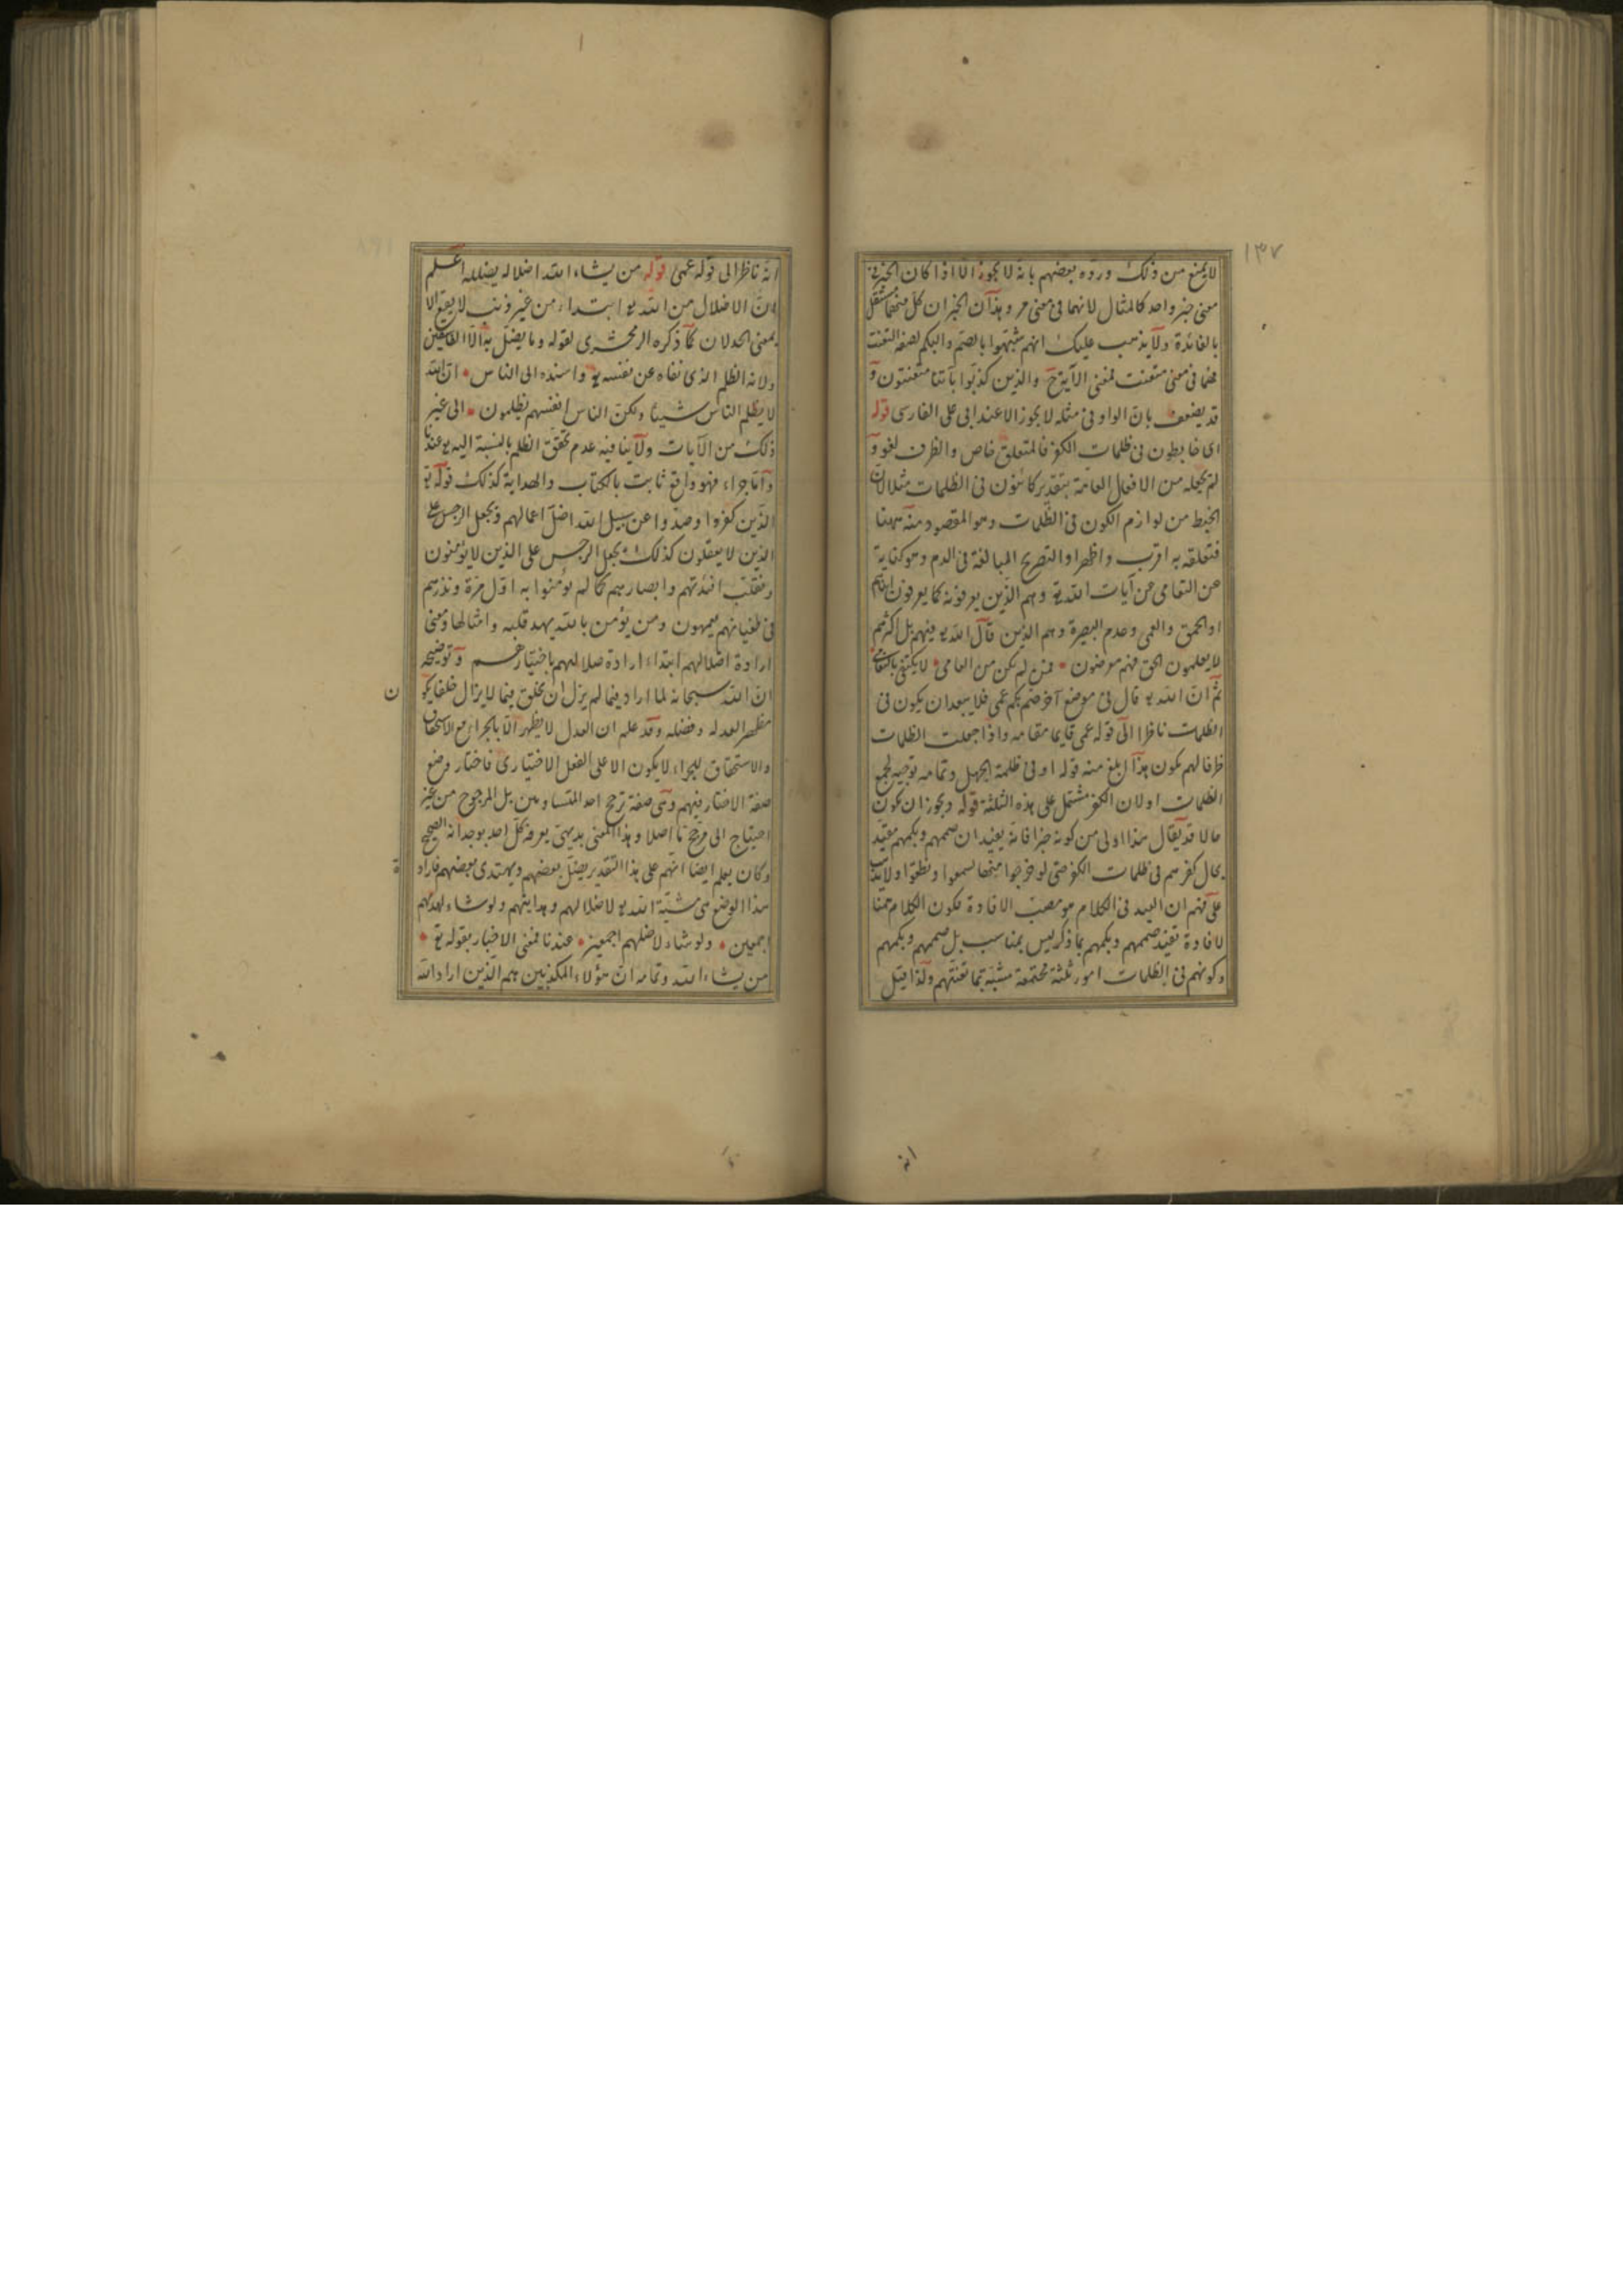 ١٣٧
لا يمنع من ذلك ورده بعضهم بانه لا يجوز الا اذا كان الخبر فى
معنى خبر واحد كالمثال لانهما فى معنى مر وهذان الخبران كل منهما مستقل
بالفائدة ولا يذهب عليك انهم شبهوا بالصم والبكم لصفة التعنت
فهما فى معنى متعنت فمعنى الآية ح والذين كذبوا بآتنا متعنتون و
قد يضعف بان الواو فى مثله لا يجوز الا عند ابى على الفارسى قوله
اى خابطون فى ظلمات الكفر فالمتعلق خاص والظرف لغو و
لم يجعله من الافعال العامة بتقدير كائنون فى الظلمات مثلا لان
الخبط من لوازم الكون فى الظلمات وهو المقصود منه ههنا
فتعلقه به اقرب واظهر او التصريح المبالغة فى الذم وهو كناية
عن التعامى عن آيات الله تع وهم الذين يعرفونه كما يعرفون ابناءهم
او الحمق والعمى وعدم البصيرة وهم الذين قال الله تع فيهم بل اكثرهم
لا يعلمون الحق فهم معرضون فمن لم يكن من العامى لا يكتفى
ثم ان الله تع قال فى موضع آخر صم بكم عمى فلا يبعد ان يكون فى
الظلمات ناظرا الى قوله عمى قايما مقامه واذا جعلت الظلمات
ظرفا لهم يكون هذا ابلغ منه قوله او فى ظلمة الجهل وتمامه توجيه لجمع
الظلمات او لان الكفر مشتمل على هذه الثلثة قوله ويجوز ان يكون
حالا قد يقال هذا اولى من كونه خبرا فانه يفيد ان صممهم وبكمهم مقيد
بحال كفرهم فى ظلمات الكفر حتى لو خرجوا منها لسمعوا ونطقوا ولا
على ان القيد فى الكلام هو مصب الافادة فكون الكلام ههنا
لافادة تقيد صممهم وبكمهم بما ذكر ليس بمناسب بل صممهم وبكمهم
وكونهم فى الظلمات امور ثلثة مجتمعة مثبتة تمام تعنتهم ولذا قيل
انه
انه ناظر الى قوله عمى قوله من يشاء الله اضلاله يضلله اعلم
ان الاضلال من الله تع ابتداء من غير ذنب لا يقع الا
بمعنى الخذلان كما ذكره الزمخشرى لقوله وما يضل به الا الفاسقين
ولانه الظلم الذى نفاه عن نفسه تع واسنده الى الناس ان الله
لا يظلم الناس شيئا ولكن الناس انفسهم يظلمون الى غير
ذلك من الآيات ولا ينافيه عدم تحقق الظلم بالنسبة اليه تع عندنا
واما جزاء فهو واقع ثابت بالكتاب والهداية كذلك قوله تع
الذين كفروا وصدوا عن سبيل الله اضل اعمالهم ويجعل الرجس على
الذين لا يعقلون كذلك يجعل الرجس على الذين لا يؤمنون
ونقلب افئدتهم وابصارهم كما لم يؤمنوا به اول مرة ونذرهم
فى طغيانهم يعمهون ومن يؤمن بالله يهد قلبه وامثالها ومعنى
ارادة اضلالهم ابتداء ارادة ضلالهم باختيارهم وتوضيحه
ان الله سبحانه لما اراد فيما لم يزل ان يخلق فيما لا يزال خلقا يكون
مظهر العدله وفضله وقد علم ان العدل لا يظهر الا بالجزاء مع الاستحقاق
والاستحقاق للجزاء لا يكون الا على الفعل الاختيارى فاختار وضع
صفة الاختار فيهم وهى صفة ترجح احد المتساويين بل المرجوح من غير
احتياج الى مرجح ما اصلا وهذا المعنى بديهى يعرفه كل احد بوجدانه الصحيح
وكان يعلم ايضا انهم على هذا التقدير يضل بعضهم ويهتدى بعضهم فارادة
هذا الوضع هى مشية الله تع لاضلالهم وهدايتهم ولو شاء لهديهم
اجمعين ولو شاء لاضلهم اجمعين عندنا فمعنى الاخبار بقوله تع
من يشاء الله وتمامه ان هؤلاء المكذبين هم الذين اراد الله